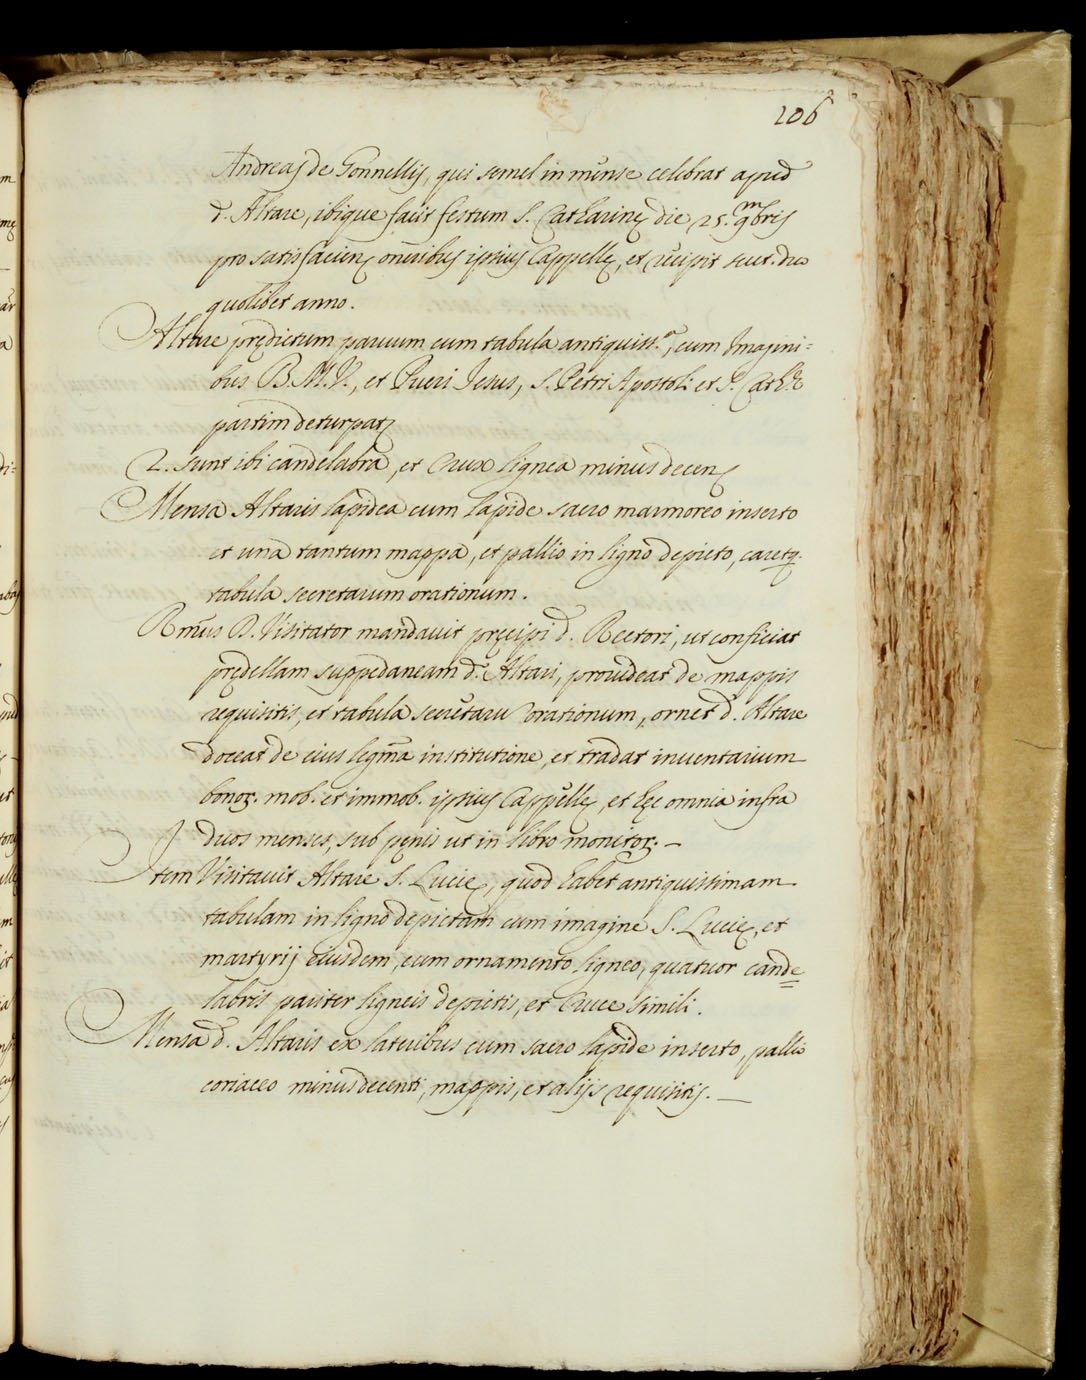 106
Andreas de Gonnellis, qui semel in mense celebrat apud
d. Altare, ibique facit festum S. Catharinę die 25. 9mbris
pro satisfacien. oneribus ipsius Cappellę, et recipit scut. duo
quolibet anno.
Altare prędictum paruum cum tabula antiquiss.a, cum Imagini=
bus B.M.V., et Pueri Jesus, S. Petri Apostoli et S. Cath.e
partim deturpat.
2. sunt ibi candelabra, et Crux lignea minus decen.
Mensa Altaris lapidea cum lapide sacro marmoreo inserto
et una tantum mappa, et pallio in ligno depicto, caretq.
tabula secretarum orationum.
Rmus D. Visitator mandauit pręcipi d. Rectori, ut conficiat
prędellam suppedaneam d. Altari, prouideat de mappis
requisitis, et tabula secretaru orationum, ornet d. Altare
doceat de eius legma institutione, et tradat inuentarium
bonor. mob. et immob. ipsius Cappellę, et hęc omnia infra
duos menses, sub pęnis ut in libro monitor. —
Item Visitauit Altare S. Lucię, quod habet antiquissimam
tabulam in ligno depictam cum imagine S. Lucię, et
martyrij eiusdem, cum ornamento ligneo, quatuor cande=
labris pariter ligneis depictis, et Cruce simili.
Mensa d. Altaris ex lateribus cum sacro lapide inserto, pallio
coriaceo minus decenti, mappis, et alijs requisitis. —